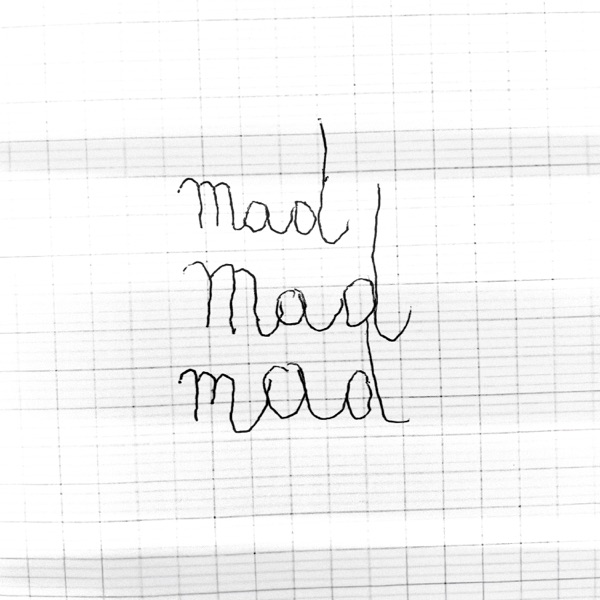 mad
mad
mad